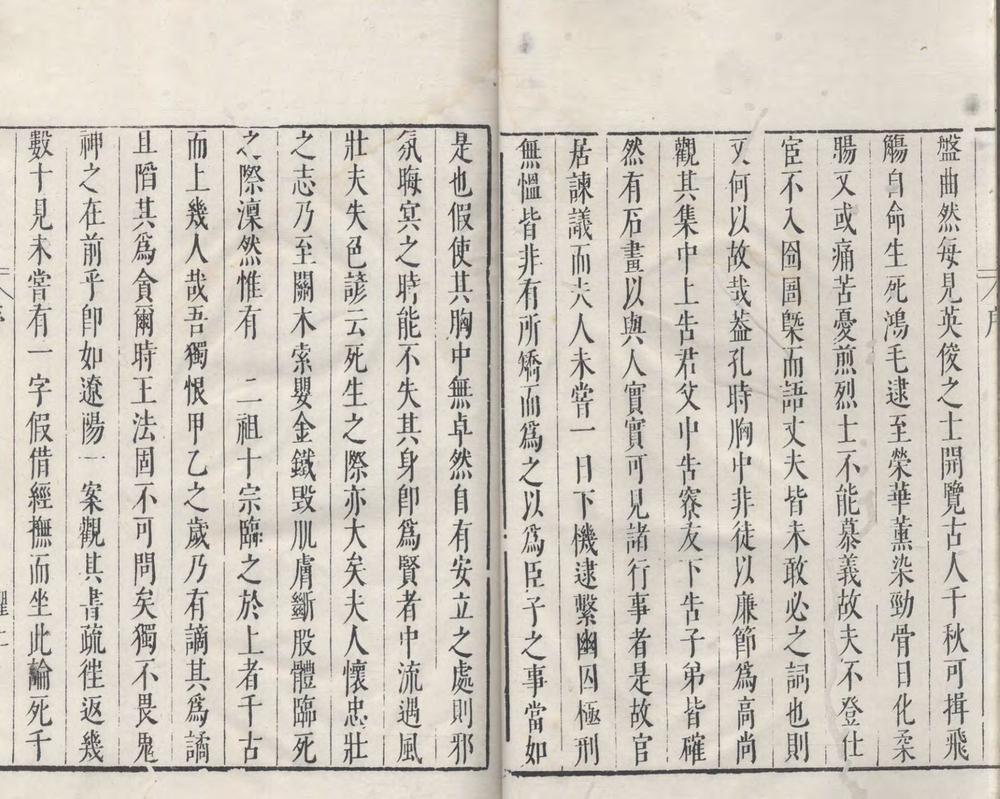 盤曲然每見英俊之士開覽古人千秋可揖飛
觴自命生死鴻毛逮至榮華薰染勁骨日化柔
腸又或痛苦憂煎烈士不能慕義故夫不登仕
宦不入囹圄槩而語丈夫皆未敢必之詞也則
又何以故哉葢孔時胸中非徒以廉節爲高尚
觀其集中上告君父中告寮友下告子弟皆確
然有石畫以與人實實可見諸行事者是故官
居諫議而夫人未嘗一日下機逮繫幽囚極刑
無慍皆非有所矯而爲之以爲臣子之事當如
是也假使其胸中無卓然自有安立之處則邪
氛晦㝠之時能不失其身卽爲賢者中流遇風
壯夫失色諺云死生之際亦大矣夫人懷忠壯
之志乃至關木索嬰金鐵毀肌膚斷股體臨死
之際凜然惟有 二祖十宗臨之於上者千古
而上幾人哉吾獨恨甲乙之歲乃有謫其爲譎
且階其爲貪爾時王法固不可問矣獨不畏鬼
神之在前乎卽如遼陽一案觀其書疏徃返幾
數十見未嘗有一字假借經撫而坐此論死千
序